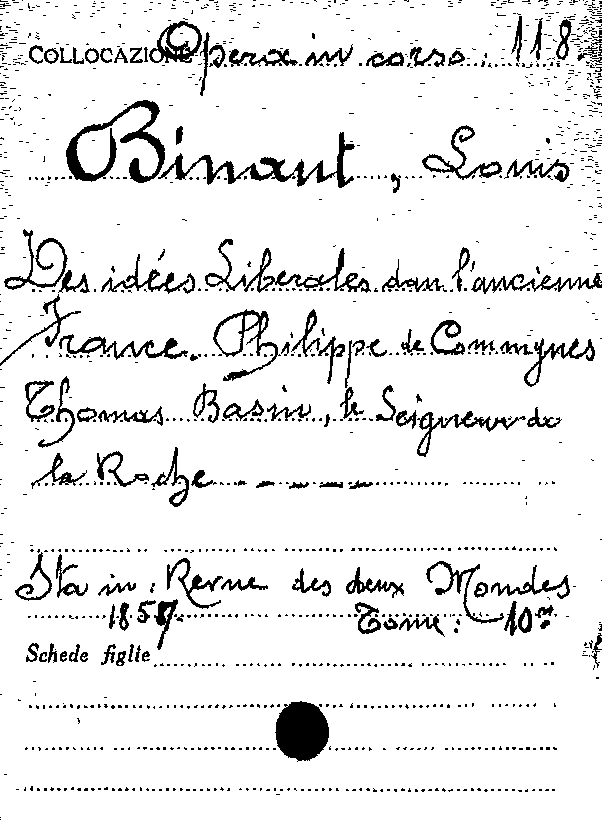 COLLOCAZIONE Opera in corso. 118.
Binaut, Louis
Des idées Liberales dan l'ancienne
France. Philippe de Commynes
Thomas Basin, le Seigneur de
la Roche - - - - -
Sta in: Revue des deux Mondes
1857. Tome: 10me
Schede figlie